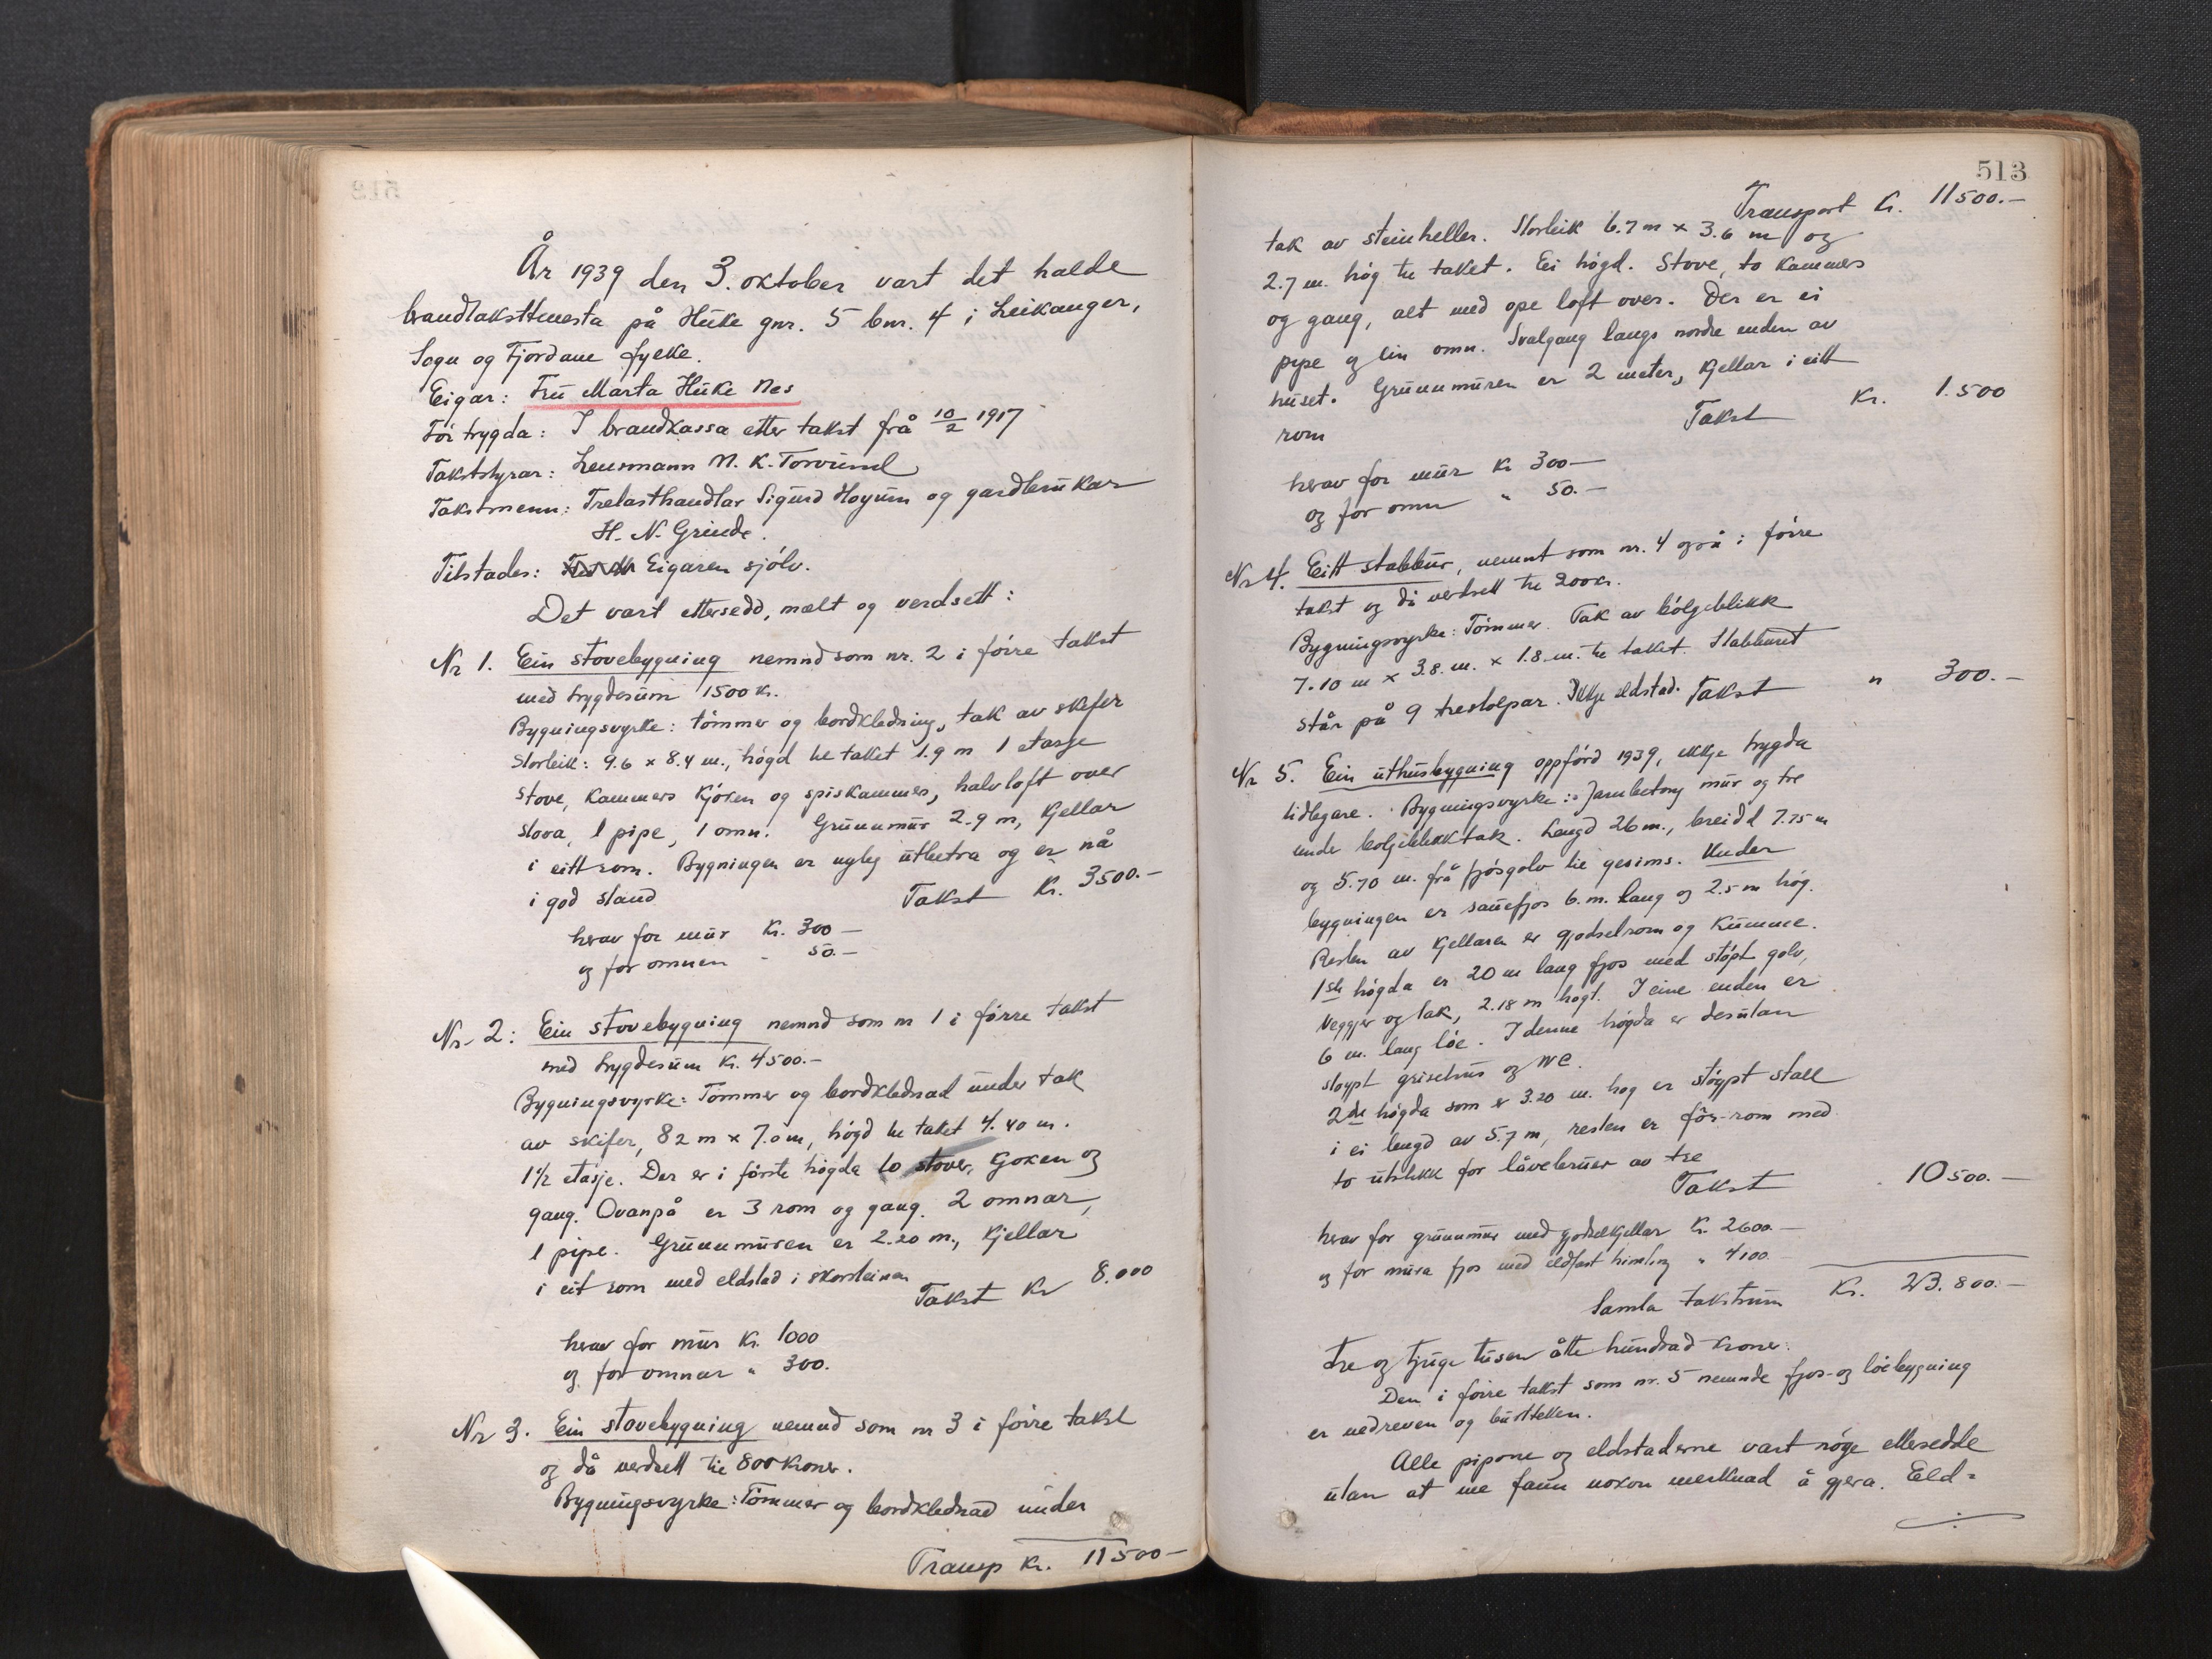 År 1939 den 3. oktober vart det halde
brandtakstteneta på Hüke gnr. 5 bnr. 4 i Leikanger,
Sogn og Fjordane fylke.
Eigar: Frü Marta Hüke Nes
För trygda: I brandkassa etter takst frå 10/2 1917
Takststyrar: Lensmann N. K. Torvünd
Takstmenn: Trelasthandlar Sigürd Hoyüm og gardbrükar
H. N. Grinde.
Tilstades: Eigaren sjólv.
Det vart ettersedd, mælt og verdsett:
Nr 1. Ein stovebygning nemnd som nr. 2 i förre takst
med trygdesüm 1500 kr.
Bygningsvyrke: tömmer og bordkledning, tak av skifer
Storleik: 9.6 x 8.4 m., högd til taket 1.9 m 1 etasje
stove, kammers kjöken og spiskammer, halvloft over
stova, 1 pipe, 1 omn. Grünnmür 2.9 m, kjellar
i eitt rom. Bygningen er nyleg ütbetra og er nå
i god stand
Takst Kr. 3500.-
herav for mür Kr. 300 -
og for omnen " 50.-
Nr. 2: Ein stovebygning nemnd som nr 1 i förre takst
med trygdesüm Kr. 4500.-
Bygningsvyrke: Tömmer og bordklednad ünder tak
av skifer, 8.2 m x 7.0 m, högd til taket 4.40 m.
1 1/2 etasje. Der er i förste högda to stover, Göken og
gang. Ovanpå er 3 rom og gang. 2 omnar,
1 pipe. Grünnmüren er 2.20 m., kjellar
i eit rom med eldstad i skorsteinen
Takst Kr 8.000
herav for mür Kr. 1000
og for omnar " 300.
Nr 3. Ein stovebygning nemnd som nr 3 i förre takst
og då verdsett til 800 kroner.
Bygningsvyrke: Tömmer og bordklednad ünder
Transp Kr. 11500-
513
Transport Kr. 11500.-
tak av steinheller. Storleik 6.7 m x 3.6 m og
2.7 m. hög til taket. Ei högd. Stove, to kammers
og gang, alt med ope loft over. Der er ei
pipe og ein omn. Svalgang langs nordre enden av
hüset. Grünnmüren er 2 meter, kjellar i eitt
rom
Takst Kr. 1.500
herav for mür Kr 300-
og for omn " 50.-
Nr 4. Eitt stabbür, nemnt som nr. 4 også i förre
takst og då verdsett til 200 kr.
Bygningsvyrke: Tömmer. Tak av bölgeblikk
7.10 m x 3.8 m. x 1.8 m. til taket. Stabburet
står på 9 trestolpar. Ikkje eldstad. Takst " 300.-
Nr 5. Ein üthüsbygning oppförd 1939, ikkje trygda
tidlegare. Bygningsvyrke: Jarnbetong mür og tre
under bolgeblikktak. Lengd 26 m., breidd 7.75 m
og 5.70 m. frå fjösgolv til gesims. Under
bygningen er sauefjos 6. m. lang og 2.5 m hög.
Resten av kjellaren er gjodselrom og kümme.
1ste högda er 20 m lang fjos med stöpt golv,
veggjer og tak, 2.18 m högt. I eine enden er
6 m. lang löe. I denne högda er desütan
stöypt grisehüs og WC.
2de högda som er 3.20 m. hog er stöypt stall
i ei lengd av 5.7 m, resten er för-rom med
to ütstikk for låvebrüer av tre
Takst 10500.-
herav for grünnmür med gjodselkjellar Kr. 2600.-
og for müra fjos med eldfast himling " 4100.-
Samla takstsüm Kr. 23.800.-
tre og tjüge tüsen åtte hündrad kroner.
Den i förre takst som nr. 5 nemnde fjos- og löebygning
er nedreven og bürtteken.
Alle pipone og eldstaderne vart nöge ettersedde
ütan at me fann nokon merknad å gjera. Eld-